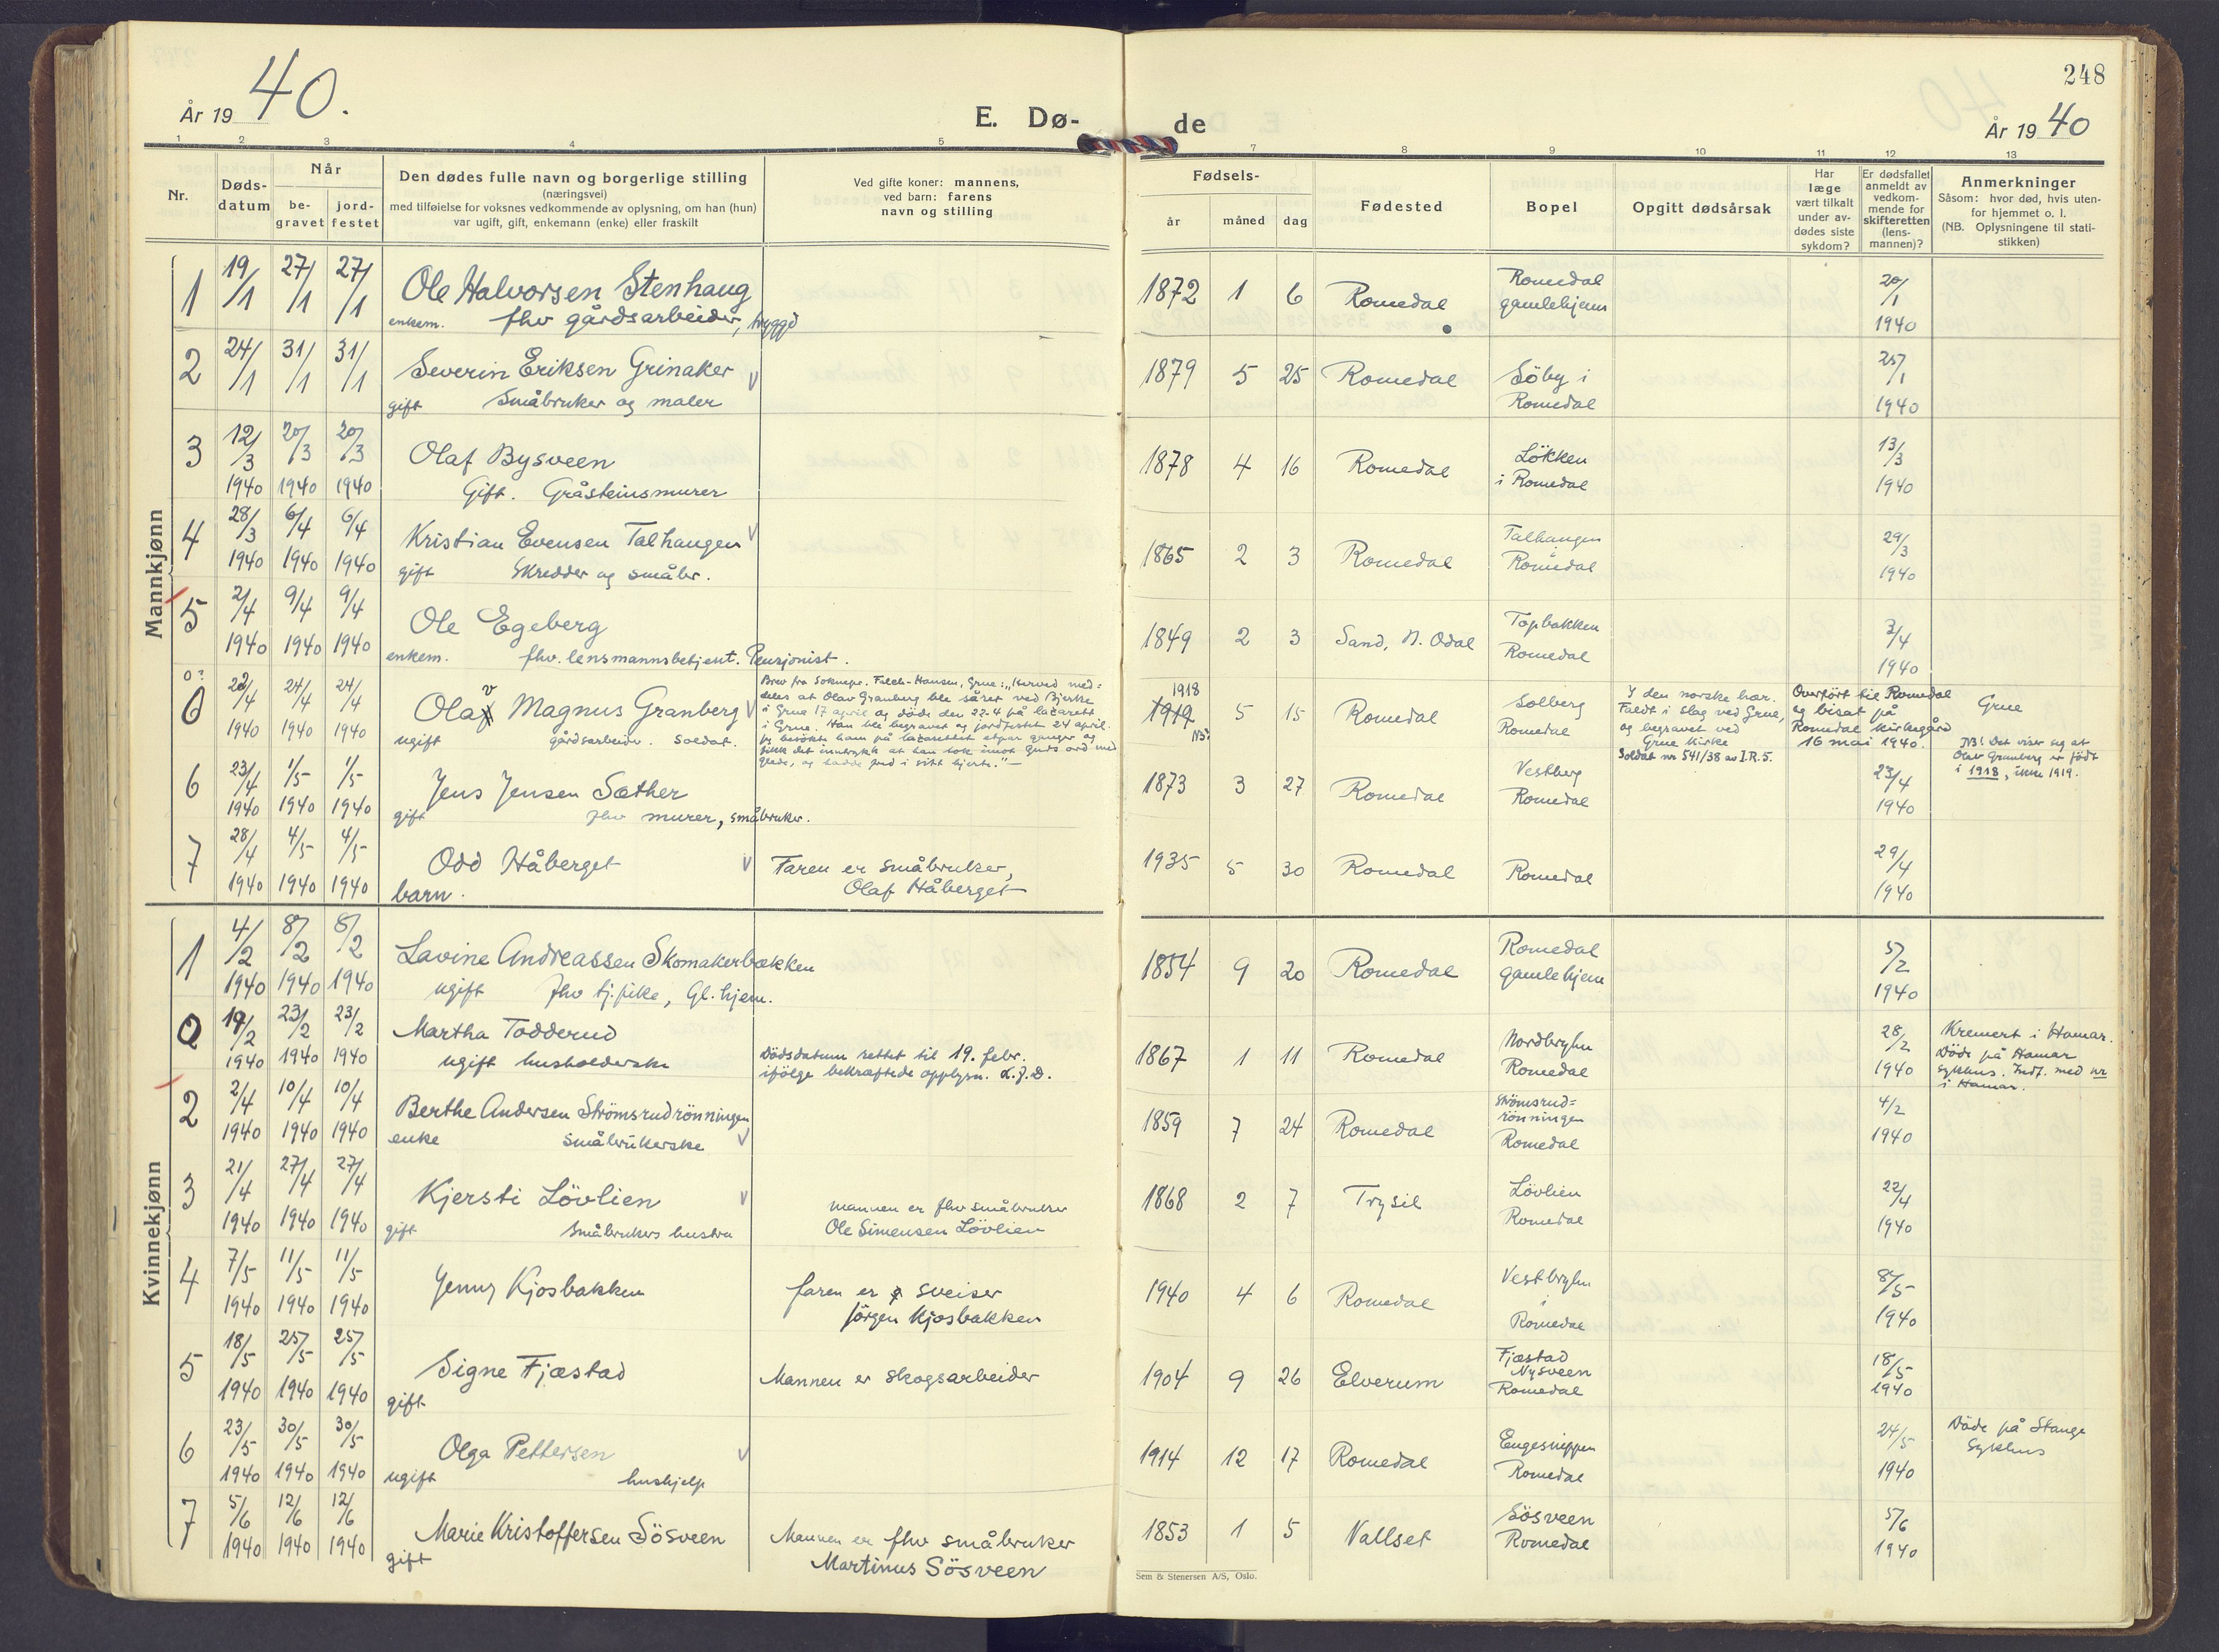 248
År 19 40.
E. Dø-
de
År 19 40
1 2 3 4 5
7 8 9 10 11 12 13
Nr.
Døds-
datum
Når
be-
gravet
jord-
festet
Den dødes fulle navn og borgerlige stilling
(næringsvei)
med tilføielse for voksnes vedkommende av oplysning, om han (hun)
var ugift, gift, enkemann (enke) eller fraskilt
Ved gifte koner: mannens,
ved barn: farens
navn og stilling
Fødsels-
år måned dag
Fødested
Bopel
Opgitt dødsårsak
Har
læge
vært tilkalt
under av-
dødes siste
sykdom?
Er dødsfallet
anmeldt av
vedkom-
mende for
skifteretten
(lens-
mannen)?
Anmerkninger
Såsom: hvor død, hvis uten-
for hjemmet o. l.
(NB. Oplysningene til stati-
stikken)
Mannkjønn
1 19/1 27/1 27/1
Ole Halvorsen Stenhaug
enkem. fhv gårdsarbeider, tryggd
1872 1 6 Romedal
Romedal
gamlehjem
20/1
1940
2 24/1 31/1 31/1
Severin Eriksen Grinaker
gift Småbruker og maler
1879 5 25 Romedal
Söby i
Romedal
25/1
1940
3 12/3 20/3 20/3
1940 1940 1940
Olaf Bysveen
Gift. Gråsteinsmurer
1878 4 16 Romedal
Lökken
i Romedal
13/3
1940
4 28/3 6/4 6/4
1940 1940 1940
Kristian Evensen Talhaugen
gift Skredder og småbr.
1865 2 3 Romedal
Talhaugen
Romedal
29/3
1940
5 2/4 9/4 9/4
1940 1940 1940
Ole Egeberg
enkem. fhv. lensmannsbetjent. Pensjonist.
1849 2 3 Sand, N. Odal
Topbakken
Romedal
3/4
1940
0 22/4 24/4 24/4
1940 1940 1940
Olav Magnus Granberg
ugift gårdsarbeider. Soldat.
Brev fra Soknepr. Falch-Hansen, Grue: "Herved med=
deles at Olav Granberg ble såret ved Bjerke
i Grue 17 april og döde den 22.4 på lazarett
i Grue. Han ble begravet og jordfestet 24 april.
Jeg besökte ham på lazarettet etpar ganger og
fikk det inntrykk at han tok imot Guds ord med
glede, og hadde fred i sitt hjerte."—
1918
1919 5 15 Romedal
NB!
Solberg
Romedal
I den norske hær.
Faldt i slag ved Grue,
og begravet ved
Grue Kirke
Soldat nr 541/38 av I.R.5.
Overfört til Romedal
og bisat på
Romedal kirkegård
16 mai 1940.
Grue
NB! Det viser seg at
Olav Granberg er födt
i 1918, ikke 1919.
6 23/4 1/5 1/5
1940 1940 1940
Jens Jensen Sæther
gift fhv murer, småbruker.
1873 3 27 Romedal
Vestberg
Romedal
23/4
1940
7 28/4 4/5 4/5
1940 1940 1940
Odd Håberget
barn.
Faren er småbruker,
Olaf Håberget
1935 5 30 Romedal
Romedal
29/4
1940
Kvinnekjønn
1 4/2 8/2 8/2
1940 1940 1940
Lavine Andreassen Skomakerbakken
ugift fhv tj.pike, Gl.hjem.
1854 9 20 Romedal
Romedal
gamlehjem
5/2
1940
0 19/2 23/2 23/2
1940 1940 1940
Martha Todderud
ugift husholderske
Dödsdatum rettet til 19. febr.
ifölge bekræftede opplysn. L.J.D.
1867 1 11 Romedal
Nordbryhn
Romedal
28/2
1940
Kremert i Hamar.
Döde på Hamar
Sykhus. Indf. med nr
i Hamar.
2 2/4 10/4 10/4
1940 1940 1940
Berthe Andersen Strömsrudrönningen
enke småbrukerske
1859 7 24 Romedal
Strömsrud=
rönningen
Romedal
4/2
1940
3 21/4 27/4 27/4
1940 1940 1940
Kjersti Lövlien
gift Småbrukers hustru
mannen er fhv småbruker
Ole Simensen Lövlien
1868 2 7 Trysil
Lövlien
Romedal
22/4
1940
4 7/5 11/5 11/5
1940 1940 1940
Jenny Kjosbakken
faren er sveiser
Jörgen Kjosbakken
1940 4 6 Romedal
Vestbryhn
i
Romedal
8/5
1940
5 18/5 25/5 25/5
1940 1940 1940
Signe Fjæstad
gift
Mannen er skogsarbeider
1904 9 26 Elverum
Fjæstad
Nysveen
Romedal
18/5
1940
6 23/5 30/5 30/5
1940 1940 1940
Olga Pettersen
ugift hushjelp
1914 12 17 Romedal
Engesnippen
Romedal
24/5
1940
Döde på Stange
Sykhus
7 5/6 12/6 12/6
1940 1940 1940
Marie Kristoffersen Sösveen
gift
Mannen er fhv småbruker
Martinus Sösveen
1853 1 5 Vallset
Sösveen
Romedal
5/6
1940
Sem & Stenersen A/S, Oslo.